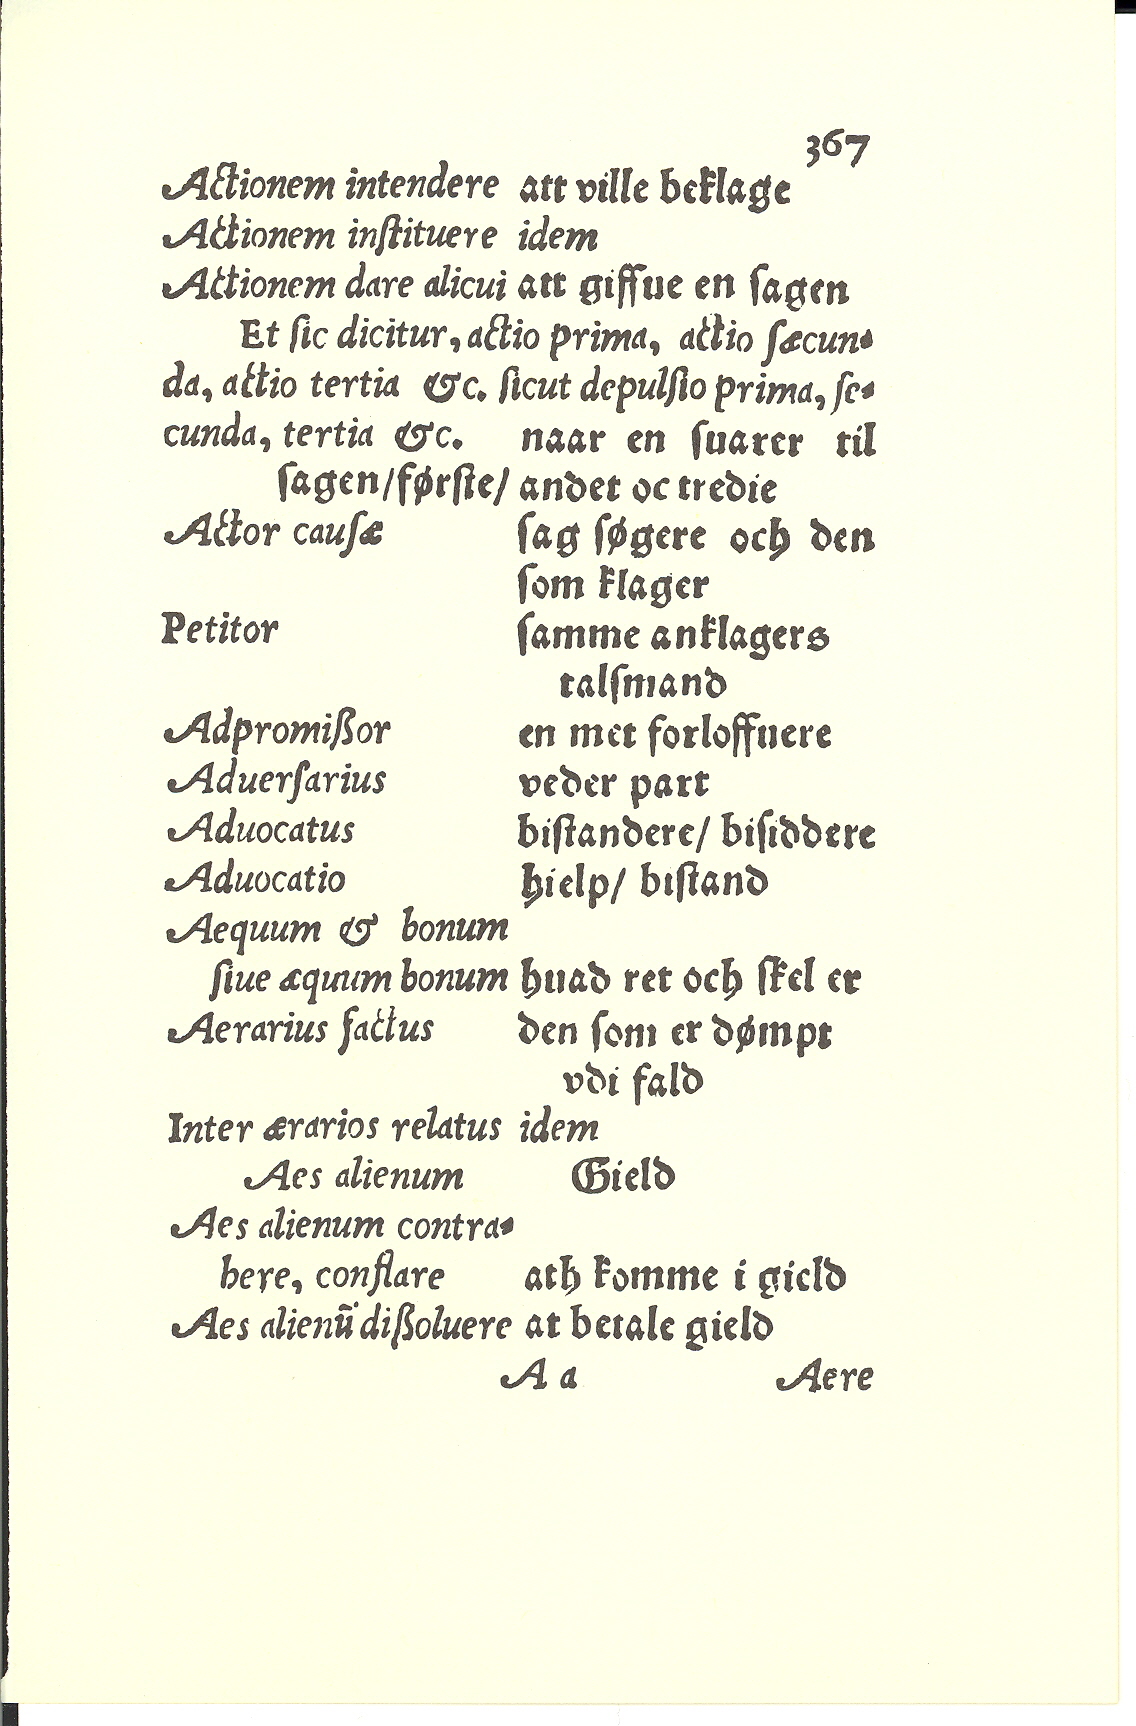 367
Actionem intendere att ville beklage
Actionem inſtituere idem
Actionem dare alicui att giffue en ſagen
Et ſic dicitur, actio prima, actio ſæcun-
da, actio tertia &c. ſicut depulſio prima, ſe-
cunda, tertia &c. naar en ſuarer til
ſagen/førſte/ andet oc tredie
Actor cauſæ ſag ſøgere och den
ſom klager
Petitor ſamme anklagers
talſmand
Adpromißor en met forloffuere
Aduerſarius veder part
Aduocatus biſtandere/ biſiddere
Aduocatio hielp/ biſtand
Aequum & bonum
ſiue æquum bonum huad ret och ſkel er
Aerarius factus den ſom er dømpt
vdi fald
Inter ærarios relatus idem
Aes alienum Gield
Aes alienum contra-
here, conflare ath komme i gield
Aes alienū dißoluere at betale gield
A a Aere